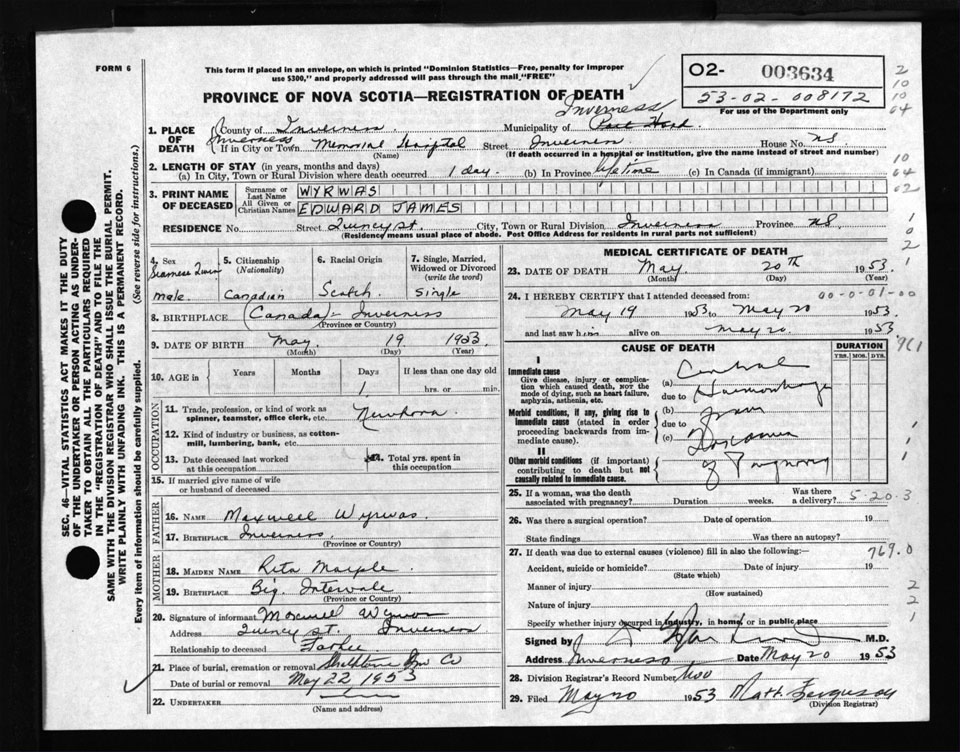 FORM 6
This form if placed in an envelope, on which is printed "Dominion Statistics—Free, penalty for improper
use $300," and properly addressed will pass through the mail "FREE"
PROVINCE OF NOVA SCOTIA—REGISTRATION OF DEATH
O2- 003634
53-02-008172
For use of the Department only
2
10
10
64
1. PLACE OF DEATH
County of Inverness. Municipality of Inverness Port Hood
If in City or Town Inverness Memorial Hospital Street Inverness House No. NS
(Name) (If death occurred in a hospital or institution, give the name instead of street and number)
2. LENGTH OF STAY (in years, months and days)
(a) In City, Town or Rural Division where death occurred 1 day. (b) In Province lifetime (c) In Canada (if immigrant)
10
64
02
3. PRINT NAME OF DECEASED
Surname or Last Name WYRWAS
All Given or Christian Names EDWARD JAMES
RESIDENCE No. Street Quincy St. City, Town or Rural Division Inverness Province NS
(Residence means usual place of abode. Post Office Address for residents in rural parts not sufficient)
1
0
2
1
4. Sex Siamese Twin male
5. Citizenship (Nationality) Canadian
6. Racial Origin Scotch
7. Single, Married, Widowed or Divorced (write the word) Single
8. BIRTHPLACE Canada - Inverness
(Province or Country)
9. DATE OF BIRTH May 19 1953
(Month) (Day) (Year)
10. AGE in Years Months Days If less than one day old
1 hrs. or min.
OCCUPATION
11. Trade, profession, or kind of work as spinner, teamster, office clerk, etc. Newborn.
12. Kind of industry or business, as cotton-mill, lumbering, bank, etc.
13. Date deceased last worked at this occupation
14. Total yrs. spent in this occupation
15. If married give name of wife or husband of deceased
FATHER
16. NAME Maxwell Wyrwas
17. BIRTHPLACE Inverness
(Province or Country)
MOTHER
18. MAIDEN NAME Rita Marple
19. BIRTHPLACE Big Intervale
(Province or Country)
20. Signature of informant Maxwell Wyrwas
Address Quincy St. Inverness
Relationship to deceased Father
21. Place of burial, cremation or removal Co
Date of burial or removal May 22 1953
22. UNDERTAKER
(Name and address)
MEDICAL CERTIFICATE OF DEATH
23. DATE OF DEATH May 20th 1953
(Month) (Day) (Year)
24. I HEREBY CERTIFY that I attended deceased from: 00-0-01-00
May 19 1953 to May 20 1953
and last saw him alive on May 20 1953
961
CAUSE OF DEATH
DURATION
YRS. MOS. DYS.
I
Immediate cause
Give disease, injury or complication which caused death, NOT the mode of dying, such as heart failure, asphyxia, asthenia, etc.
(a) Cerebral
due to Haemorrhage
Morbid conditions, if any, giving rise to immediate cause (stated in order proceeding backwards from immediate cause).
(b) from
due to
(c) Toxaemia
II
Other morbid conditions (if important) contributing to death but not causally related to immediate cause.
of Pregnancy
1
1
1
25. If a woman, was the death associated with pregnancy? Duration weeks. Was there a delivery? 5-20-3
26. Was there a surgical operation? Date of operation 19
State findings Was there an autopsy?
27. If death was due to external causes (violence) fill in also the following:— 769.0
Accident, suicide or homicide? Date of injury 19
(State which)
Manner of injury
(How sustained)
Nature of injury
Specify whether injury occurred in industry, in home, or in public place
2
2
1
Signed by M.D.
Address Inverness Date May 20 1953
28. Division Registrar's Record Number
29. Filed May 20 1953 Math. Ferguson
(Division Registrar)
SEC. 46—VITAL STATISTICS ACT MAKES IT THE DUTY
OF THE UNDERTAKER OR PERSON ACTING AS UNDER-
TAKER TO OBTAIN ALL THE PARTICULARS REQUIRED
IN THE "REGISTRATION OF DEATH" AND TO FILE THE
SAME WITH THE DIVISION REGISTRAR WHO SHALL ISSUE THE BURIAL PERMIT.
WRITE PLAINLY WITH UNFADING INK. THIS IS A PERMANENT RECORD.
Every item of information should be carefully supplied. (See reverse side for instructions.)